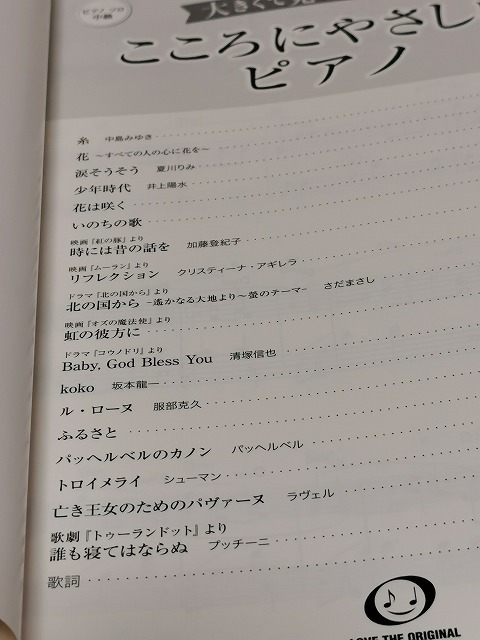 ピアノ・ソロ
中級
大きくて見
こころにやさし
ピアノ
糸 中島みゆき
花 ～すべての人の心に花を～
涙そうそう 夏川りみ
少年時代 井上陽水
花は咲く
いのちの歌
映画『紅の豚』より
時には昔の話を 加藤登紀子
映画『ムーラン』より
リフレクション クリスティーナ・アギレラ
ドラマ『北の国から』より
北の国から -遙かなる大地より～螢のテーマ- さだまさし
映画『オズの魔法使』より
虹の彼方に
ドラマ『コウノドリ』より
Baby, God Bless You 清塚信也
koko 坂本龍一
ル・ローヌ 服部克久
ふるさと
パッヘルベルのカノン パッヘルベル
トロイメライ シューマン
亡き王女のためのパヴァーヌ ラヴェル
歌劇『トゥーランドット』より
誰も寝てはならぬ プッチーニ
歌詞
LOVE THE ORIGINAL